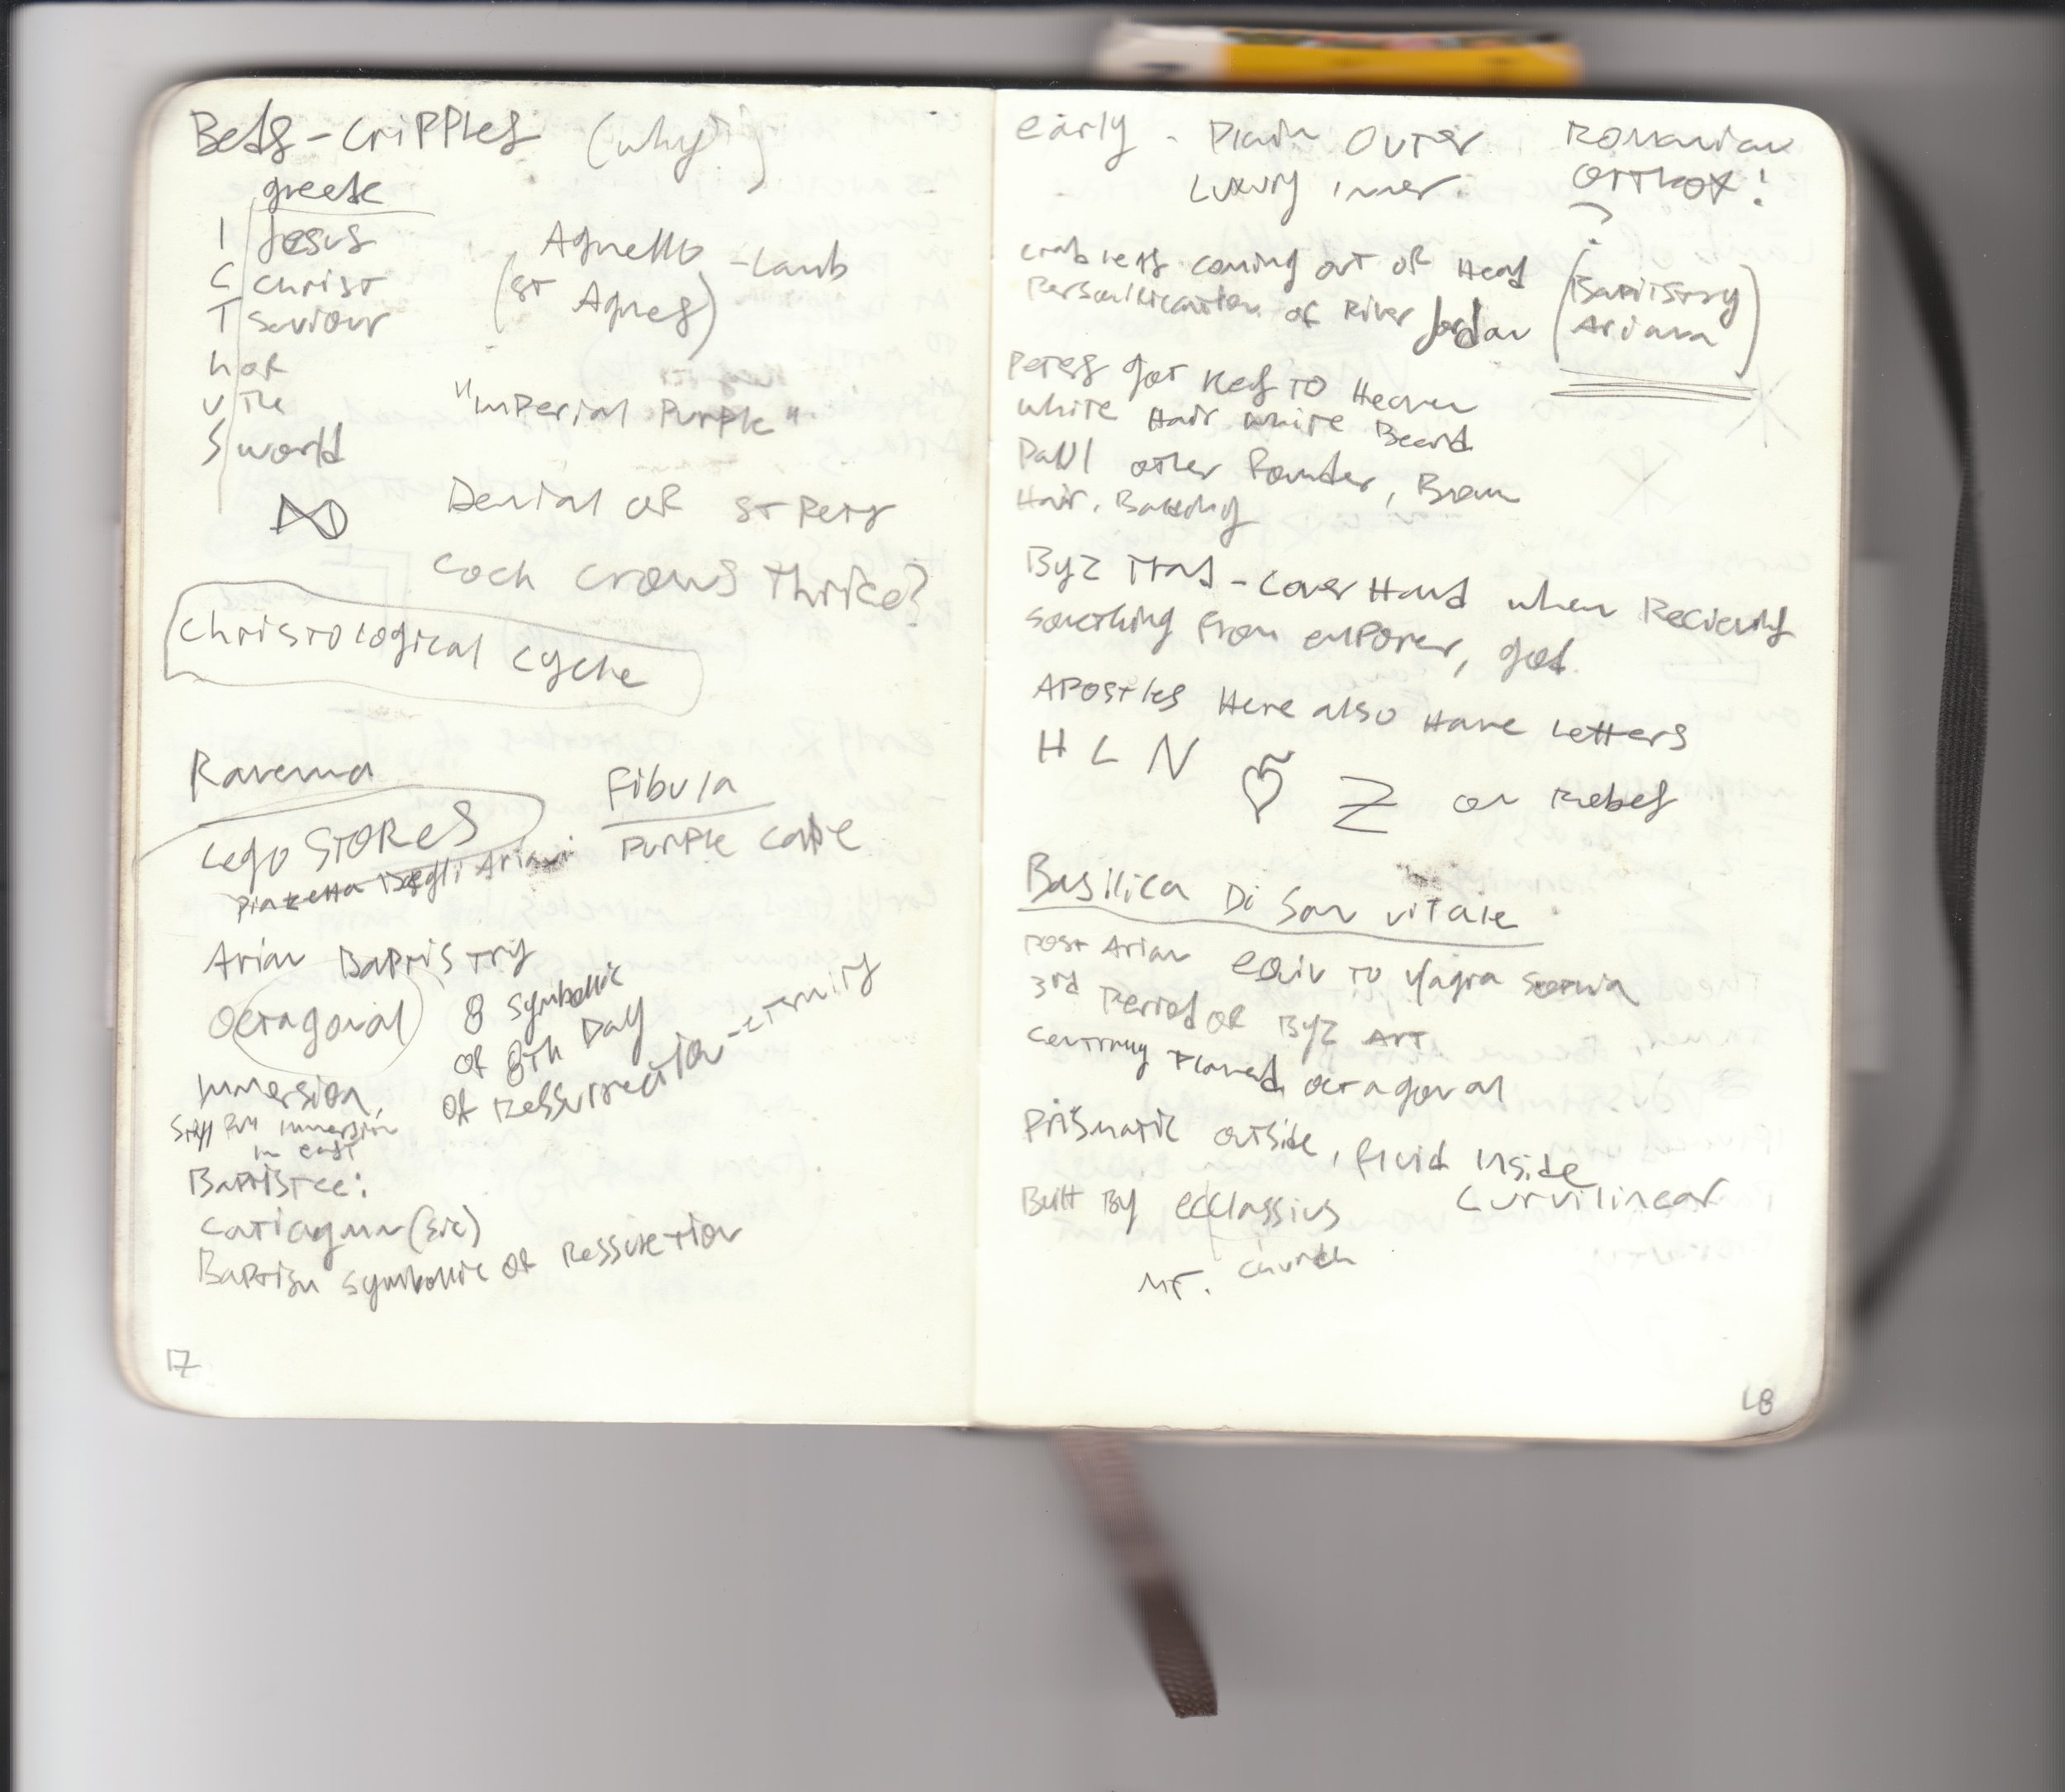 Beds - Cripples (why?)
greek
I Jesus
C Christ
T Saviour
h of
u The
S world
Agnello - Lamb
(St Agnes)
"Imperial Purple"
Denial of St Peter
Cock crows thrice?
Christological cycle
Ravenna
Lego STORES
Piazetta Degli Ariani
Fibula
Purple Cape
Arian Baptistry
Octagonal
8 symbollic
of 8th Day
of Ressurrection - eternity
Immersion,
Still Full immersion
in east
Baptistee:
Catiagman (sic)
Baptism symbollic of Ressurection
17
early - Plain Outer
Luxury inner.
Romanian
Orthox!
?
Crab legs coming out of Head
Personification of River Jordan
(Baptistry
Ariana)
Peters got Keys to Heaven
white Hair white Beard
Paul other Founder, Brown
Hair, Balding
Byz Trad - Cover Hand when Recieving
something from emporer, god.
Apostles Here also Have Letters
H L N Z on Robes
Basilica Di San Vitale
Post Arian equiv to Hagia Sophia
3rd Period of Byz Art
Centrally Planned octagonal
Prismatic outside, fluid inside
Curvilinear
Built By ecclassius
Mr. Church
18